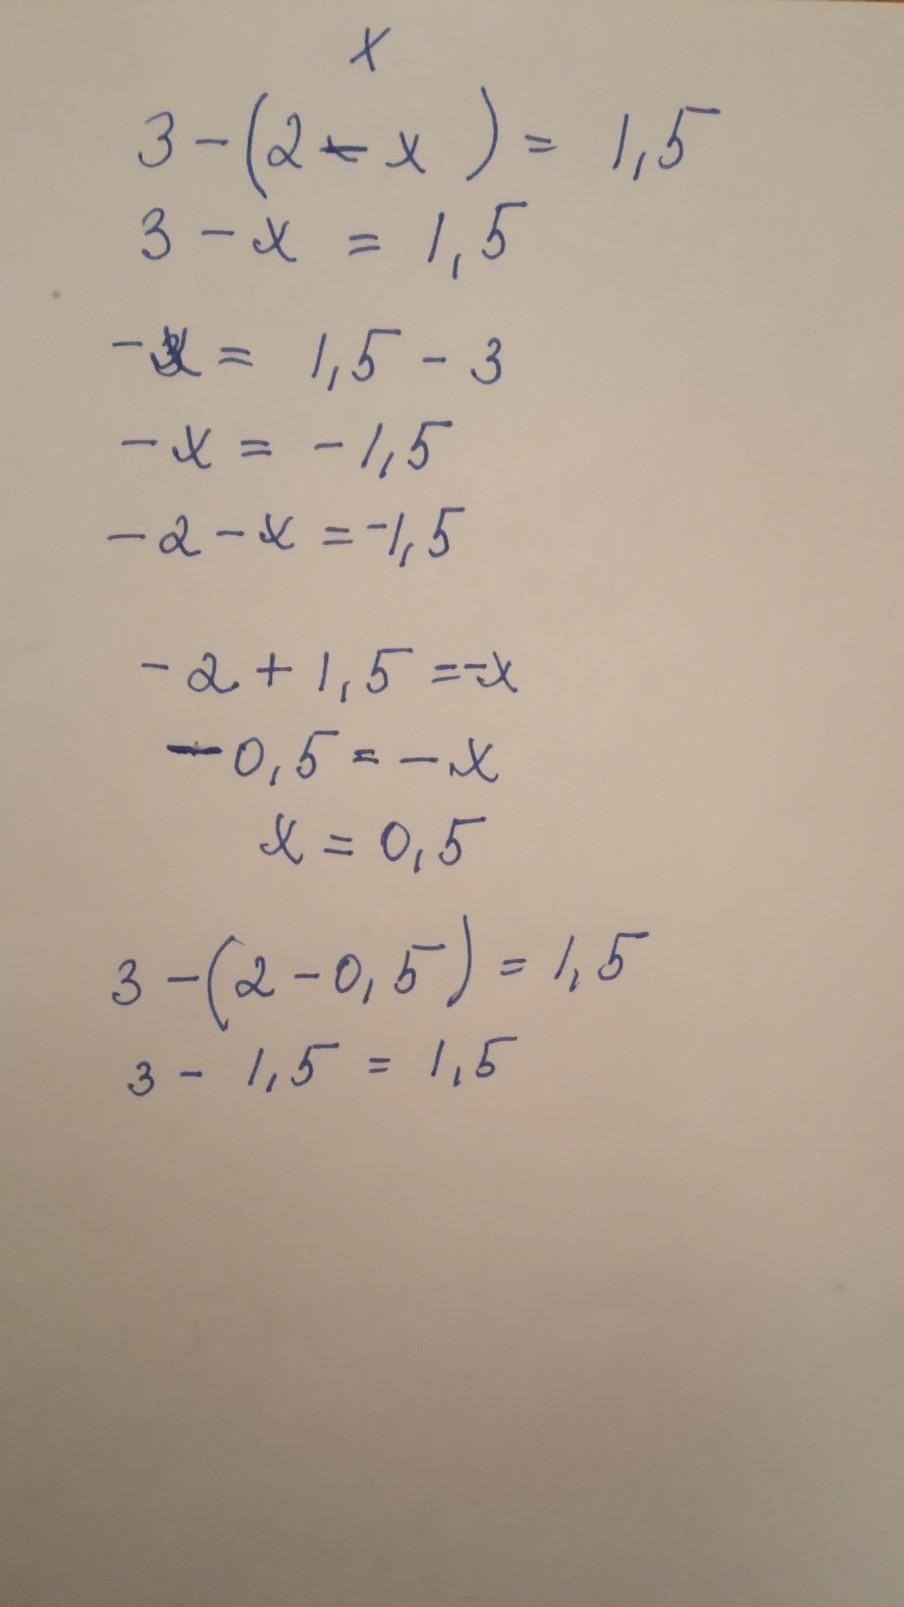 x
3-(2-x)=1,5
3-x=1,5
-x=1,5-3
-x=-1,5
-2-x=-1,5
-2+1,5=-x
-0,5=-x
x=0,5
3-(2-0,5)=1,5
3-1,5=1,5